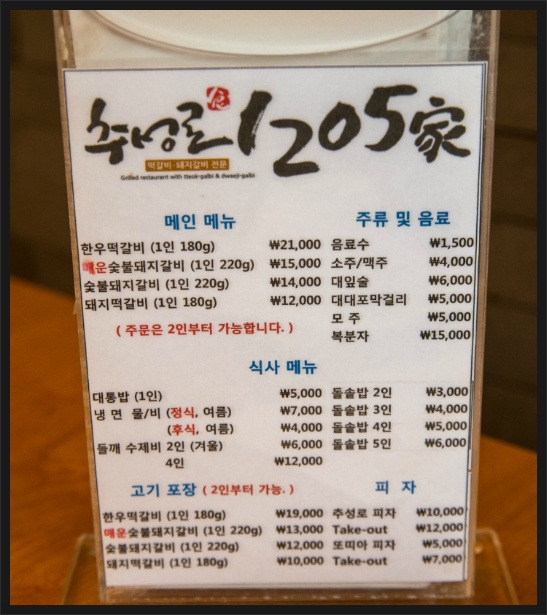 추성로 食 1205家
떡갈비·돼지갈비 전문
Grilled restaurant with tteok-galbi & dwaeji-galbi
메인 메뉴
한우떡갈비 (1인 180g) ₩21,000
매운숯불돼지갈비 (1인 220g) ₩15,000
숯불돼지갈비 (1인 220g) ₩14,000
돼지떡갈비 (1인 180g) ₩12,000
( 주문은 2인부터 가능합니다. )
주류 및 음료
음료수 ₩1,500
소주/맥주 ₩4,000
대잎술 ₩6,000
대대포막걸리 ₩5,000
모 주 ₩5,000
복분자 ₩15,000
식사 메뉴
대통밥 (1인) ₩5,000
냉 면 물/비 (정식, 여름) ₩7,000
(후식, 여름) ₩4,000
들깨 수제비 2인 (겨울) ₩6,000
4인 ₩12,000
돌솥밥 2인 ₩3,000
돌솥밥 3인 ₩4,000
돌솥밥 4인 ₩5,000
돌솥밥 5인 ₩6,000
고기 포장 ( 2인부터 가능. )
한우떡갈비 (1인 180g) ₩19,000
매운숯불돼지갈비 (1인 220g) ₩13,000
숯불돼지갈비 (1인 220g) ₩12,000
돼지떡갈비 (1인 180g) ₩10,000
피 자
추성로 피자 ₩10,000
Take-out ₩12,000
또띠아 피자 ₩5,000
Take-out ₩7,000